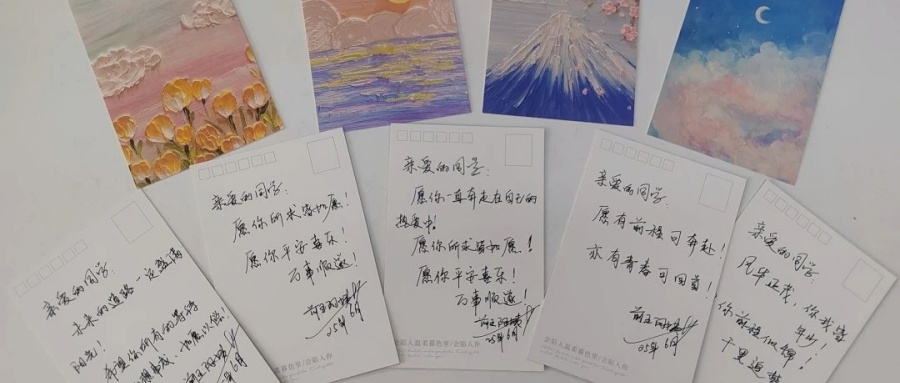 亲爱的同学：
未来的道路一定盛满
阳光！
希望你所有的
亲爱的同学：
愿你所求皆如愿！
愿你平安喜乐！
万事顺遂！
25年6月
温柔暮色里/全陷入你
亲爱的同学：
愿你一直奔走在自己的
热爱中！
愿你所求皆如愿！
愿你平安喜乐！
万事顺遂！
25年6月
全陷入温柔暮色里/全陷入你
亲爱的同学：
愿有前程可奔赴！
亦有青春可回首！
25年6月
亲爱的同学：
风华正茂，你我皆
年少！
你前程似锦
千里